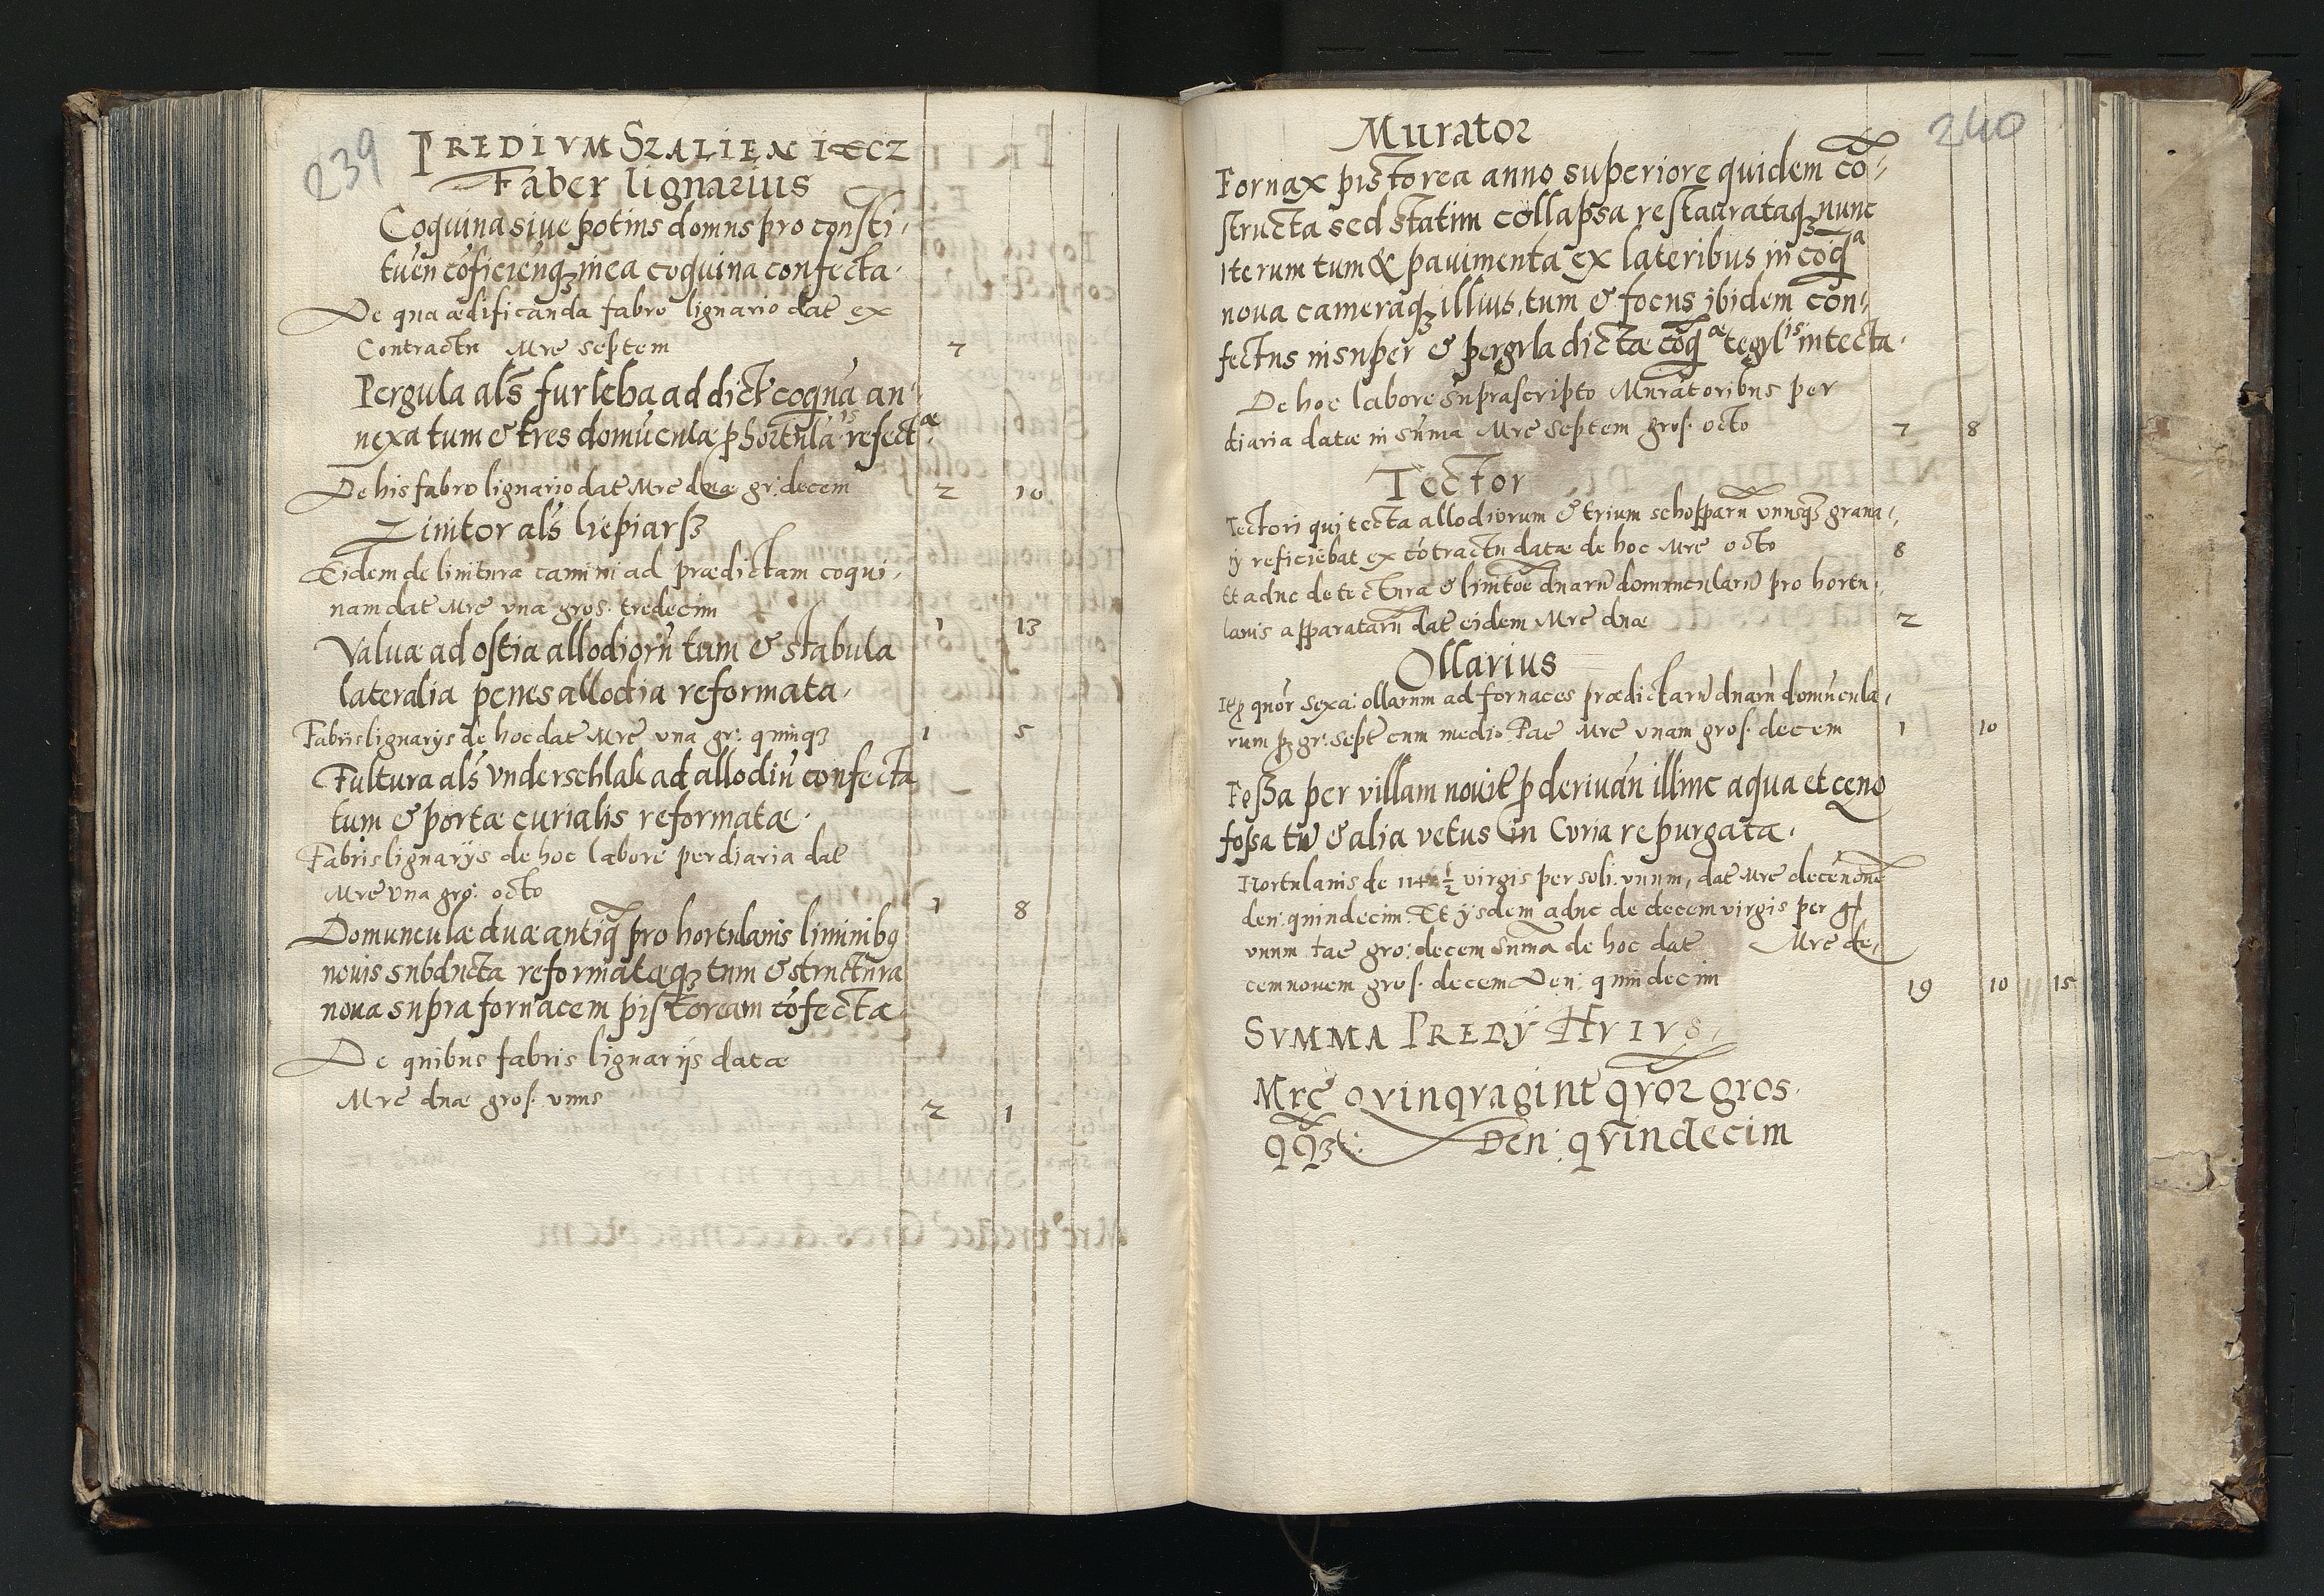 239
PREDIVM SZALIENIECZ
Faber lignarius
Coquina siue potius domus pro consti,
tuen cōficiēnqꝫ in ea coquina confecta.
De qua ædificanda fabro lignario dat ex
Contractu Mrc septem 7
Pergula als̄ furleba ad dict coquā an,
nexa tum & tres domūculæ p hortulaⁱˢ refectᵃᵉ.
De his fabro lignario dat Mrc duæ gr: decem 2 10
Linitor als̄ liepiarſꝫ
Eidem de linitura camini ad prædictam coqui,
nam dat Mrc vna gros. tredecim 1 13
Valuæ ad ostia allodiorū tum & stabula
lateralia penes allodia reformata.
Fabris lignarijs de hoc dat Mrc vna gr: quinqꝫ 1 5
Fultura als̄ vnderschlak ad allodiū confecta
tum & portæ curialis reformatæ.
Fabris lignarijs de hoc labore per diaria dat
Mrc vna gro: octo 1 8
Domunculæ duæ antiq̄ pro hortulanis liminibꝯ
nouis subducta reformatæqꝫ tum & structura
noua supra fornacem pistoream cōfecta
De quibus fabris lignarijs datæ
Mrc duæ gros. vnus 2 1
240
Murator
Fornax pistorea anno superiore quidem cō,
structa sed statim collapsa restaurataqꝫ nunc
iterum tum & pavimenta ex lateribus in coq̄ᵃ
noua cameraqꝫ illius, tum & focus ibidem con,
fectus insuper & pergvla dictæ coq̄ᵃᵉ tegvlⁱˢ intecta.
De hoc labore suprascripto Muratoribus per
diaria datæ in sūma Mrc septem gros. octo 7 8
Tector
Tectori qui tecta allodiorum & trium schopparū vnusqꝫ grana,
ij reficiēbat ex cōtractu datæ de hoc Mrc octo 8
Et adhc de tectura & linitōe duarū domuncularū pro hortu,
lanis apparatarū dat eidem Mrc duæ 2
Ollarius
Itꝫ quōr sexa: ollarum ad fornaces prædictarū duarū domūcula,
rum p gr: sept cum medio. Fac Mrc vnam gros. decem 1 10
Foßa per villam novit p deriuān illinc aqua et ceno
fossa tū & alia vetus in Cvria repurgata.
Hortulanis de 114 ½ virgis per soli: vnum, dat Mrc decēnoue
den: quindecim. Et ijsdem adhc de decem virgis per gr
vnum fac gro: decem Suma de hoc dat Mrc de,
cemnouem gros. decem Den: quindecim 19 10 15
SVMMA PREDY HVIVS,
Mrc qvinqvagint qvor gros.
qqꝫ: Den: qvindecim